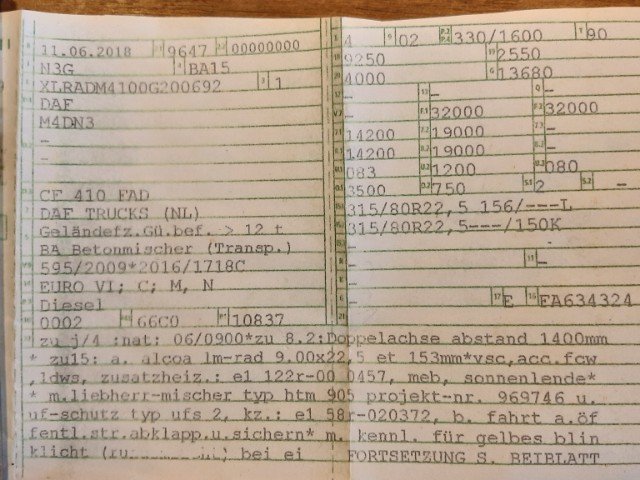 11.06.2018 9647 00000000
N3G BA15
XLRADM4100G200692 1
DAF
M4DN3
-
-
CF 410 FAD
DAF TRUCKS (NL)
Geländefz.Gü.bef. > 12 t
BA Betonmischer (Transp.)
595/2009*2016/1718C
EURO VI; C; M, N
Diesel
0002 66C0 10837
4 02 330/1600 90
9250 2550
4000 13680
- - -
- 32000 32000
14200 19000 -
14200 19000 -
083 1200 080
3500 750 2 -
315/80R22,5 156/---L
315/80R22,5---/150K
-
- -
-
- E FA634324
zu j/4 :nat: 06/0900*zu 8.2:Doppelachse abstand 1400mm
* zu15: a. alcoa lm-rad 9.00x22,5 et 153mm*vsc,acc.fcw
,ldws, zusatzheiz.: e1 122r-00 0457, meb, sonnenlende*
* m.liebherr-mischer typ htm 905 projekt-nr. 969746 u.
uf-schutz typ ufs 2, kz.: e1 58r-020372, b. fahrt a.öf
fentl.str.abklapp.u.sichern* m. kennl. für gelbes blin
klicht (zu. bei ei FORTSETZUNG S. BEIBLATT